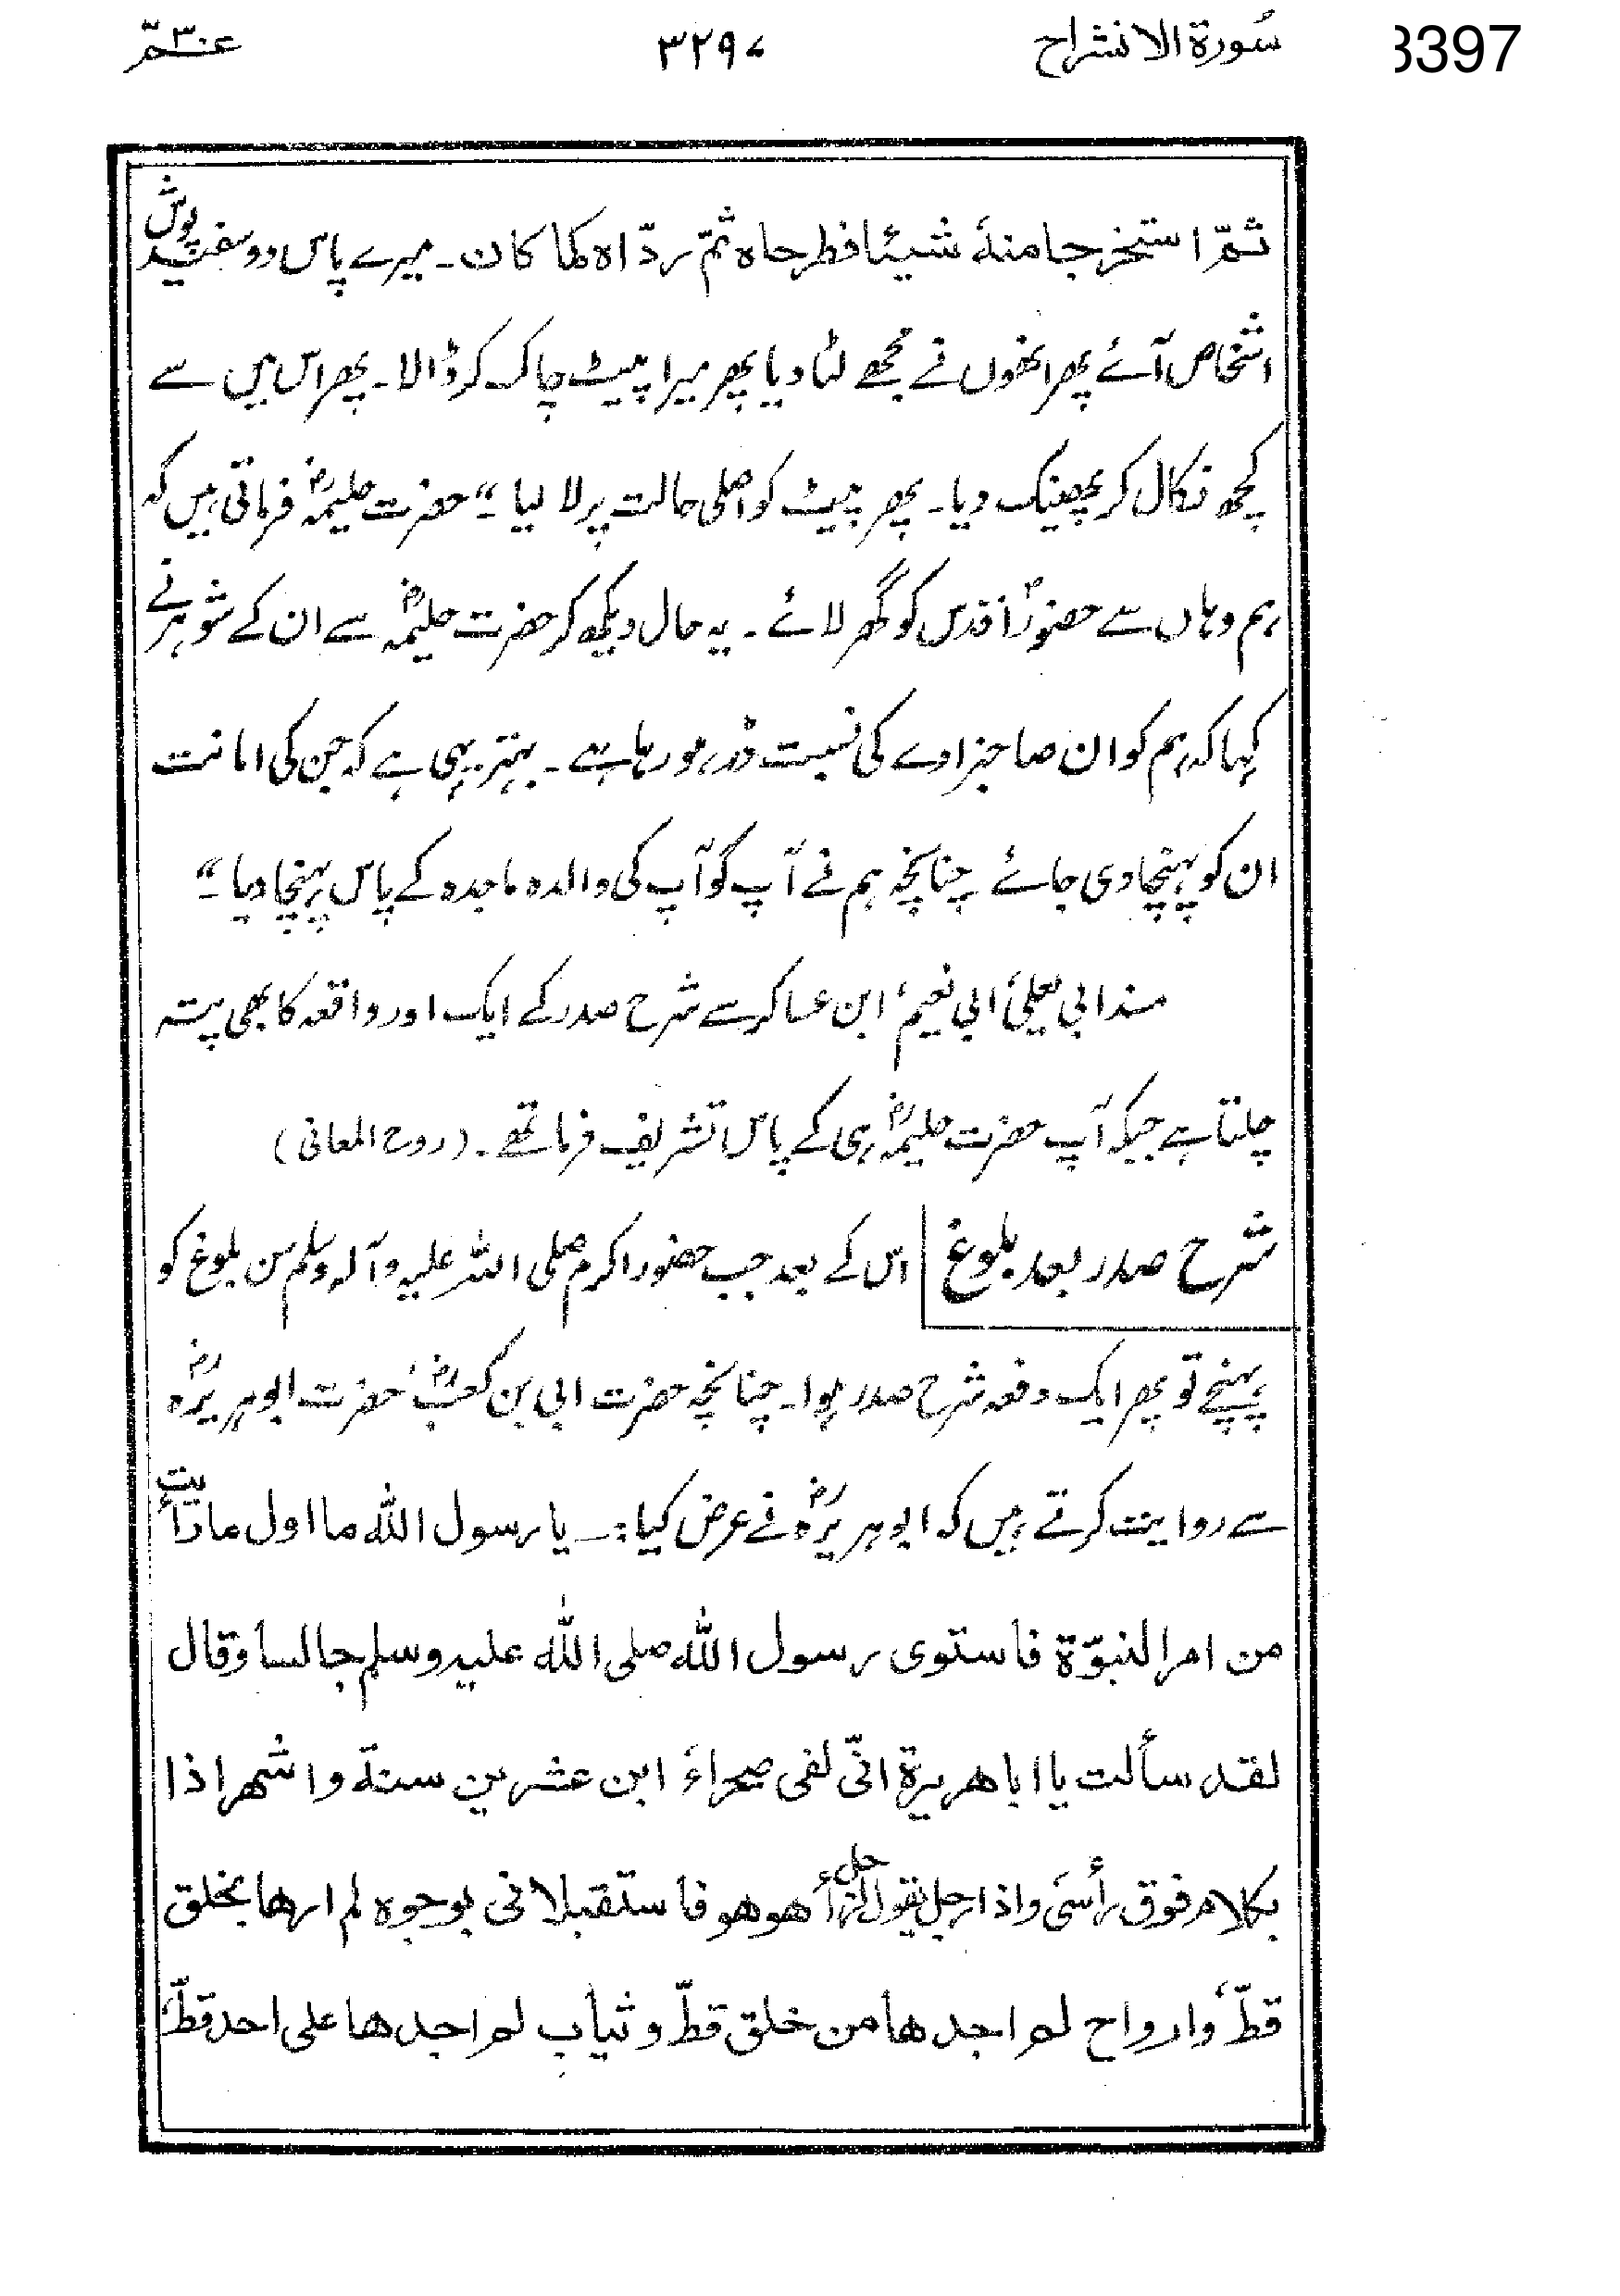 سُورۃ الانشراح ۳۲۹۷ عـمّ ۳۰ 3397
ثمّ استخرجا منهٗ شیئا فطرحاہ ثمّ ردّاہ کما کان۔ میرے پاس دو سفید پوش
اشخاص آئے پھر انھوں نے مجھے لٹا دیا پھر میرا پیٹ چاک کر ڈالا۔ پھر اس میں سے
کچھ نکال کر پھینک دیا۔ پھر پیٹ کو اصلی حالت پر لا لیا ۔“ حضرت حلیمہؓ فرماتی ہیں کہ
ہم وہاں سے حضورؐ اقدس کو گھر لائے ۔ یہ حال دیکھ کر حضرت حلیمہؓ سے ان کے شوہر نے
کہا کہ ہم کو ان صاحبزادے کی نسبت ڈر ہو رہا ہے ۔ بہتر یہی ہے کہ جن کی امانت
ان کو پہنچا دی جائے ۔ چنانچہ ہم نے آپ کو آپ کی والدہ ماجدہ کے پاس پہنچا دیا ۔“
مسند ابی یعلیٰ، ابی نعیم، ابن عساکر سے شرح صدر کے ایک اور واقعہ کا بھی پتہ
چلتا ہے جبکہ آپ حضرت حلیمہؓ ہی کے پاس تشریف فرما تھے ۔ (روح المعانی)
شرح صدر بعد بلوغ اس کے بعد جب حضور اکرم صلی اللہ علیہ وآلہ وسلم سن بلوغ کو
پہنچے تو پھر ایک دفعہ شرح صدر ہوا۔ چنانچہ حضرت ابی بن کعبؓ، حضرت ابوہریرہؓ
سے روایت کرتے ہیں کہ ابوہریرہؓ نے عرض کیا :۔ یا رسول اللہ ما اول ما رأیت
من امر النبوّۃ فاستوی رسول اللہ صلی اللہ علیہ وسلم جالسا وقال
لقد سألت یا ابا ھریرۃ انّی لفی صحراءَ ابن عشرین سنۃ واشھر اذا
بکلام فوق رأسی واذا رجل یقول لرجل أھو ھو فاستقبلانی بوجوہ لم ارھا بخلق
قطّ، وارواح لم اجدھا من خلق قطّ وثیاب لم اجدھا علی احد قطّ،